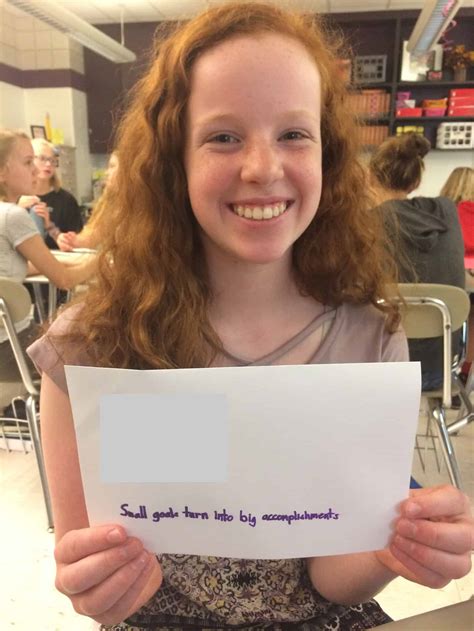 Small goals turn into big accomplishments